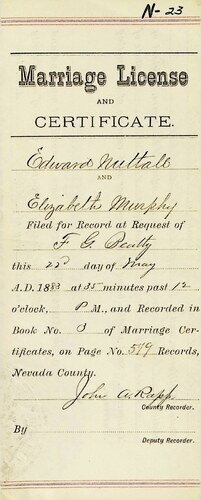 N-23
Marriage License
AND
CERTIFICATE.
Edward Nuttall
AND
Elizabeth Murphy
Filed for Record at Request of
F. G. Beatty
this 22d day of May
A.D. 1883 at 35 minutes past 12
o'clock, P M., and Recorded in
Book No. 3 of Marriage Cer-
tificates, on Page No. 579 Records,
Nevada County.
John A. Rapp.
County Recorder.
By
Deputy Recorder.